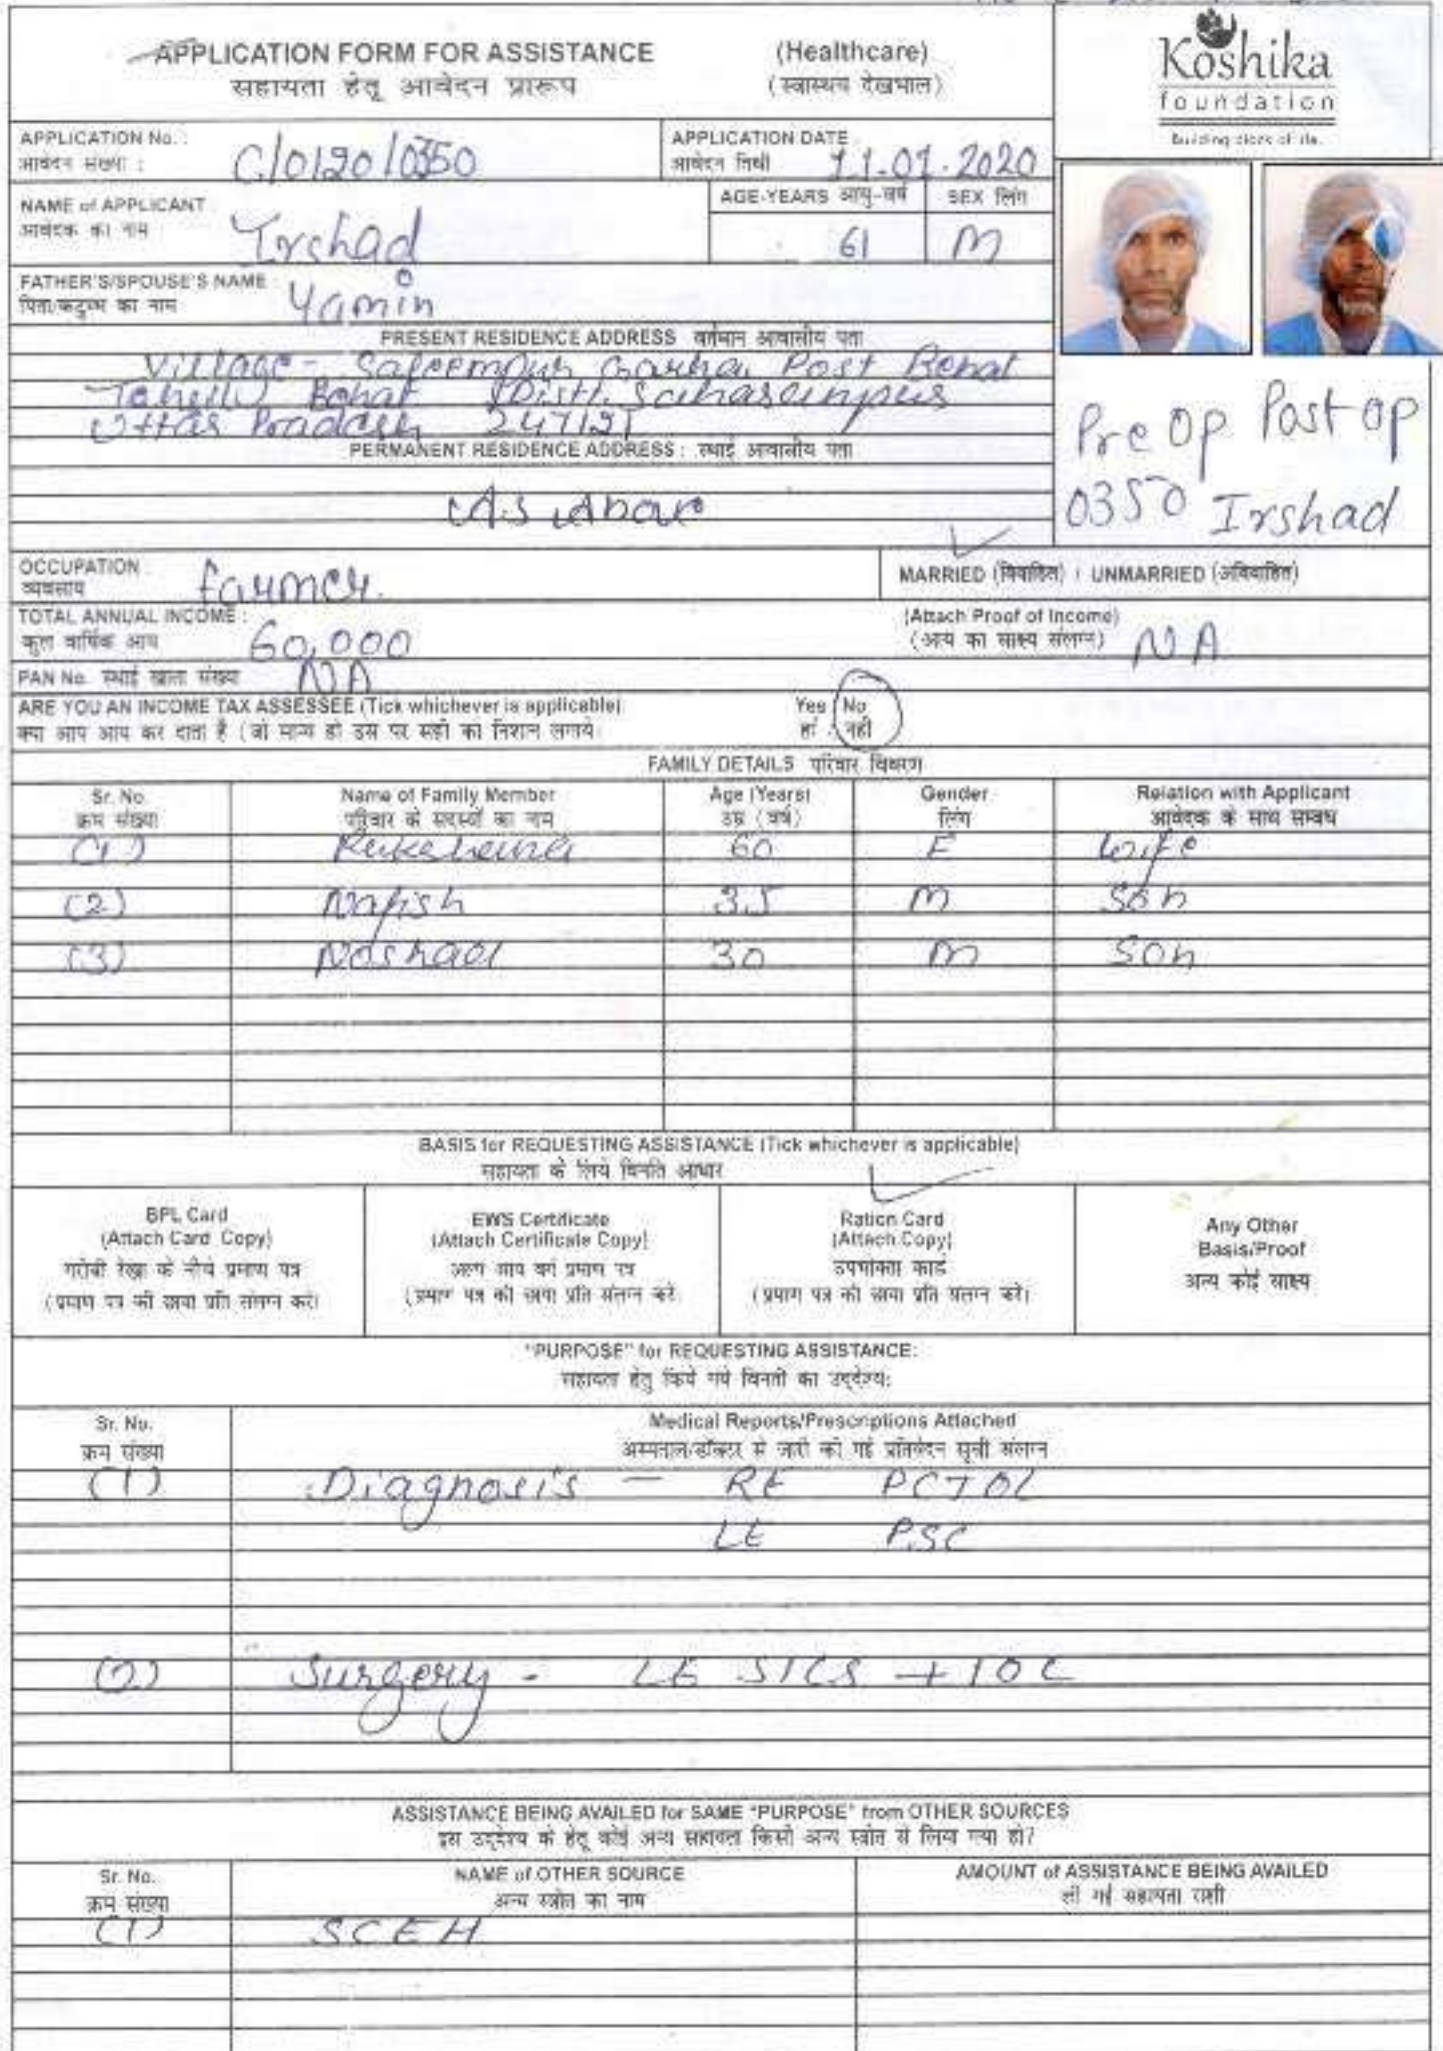 APPLICATION FORM FOR ASSISTANCE (Healthcare)
सहायता हेतू आवेदन प्रारूप (स्वास्थय देखभाल)
Koshika
foundation
APPLICATION No. :
आवेदन संख्या : C/0120/0350
APPLICATION DATE
आवेदन तिथी 11.01.2020
NAME of APPLICANT
आवेदक का नाम Irshad
AGE-YEARS आयु-वर्ष 61
SEX लिंग M
FATHER'S/SPOUSE'S NAME :
पिता/कटुम्भ का नाम Yamin
PRESENT RESIDENCE ADDRESS वर्तमान आवासीय पता
Village - Saleempur Post Behat
Behat Distt.
Uttar Pradesh 247121
PERMANENT RESIDENCE ADDRESS : स्थाई आवासीय पता
As Above
Pre Op Post op
0350 Irshad
OCCUPATION
व्यवसाय farmer.
MARRIED (विवाहित) / UNMARRIED (अविवाहित)
TOTAL ANNUAL INCOME :
कुल वार्षिक आय 60,000
(Attach Proof of Income)
(आय का साक्ष्य संलग्न) NA
PAN No. स्थाई खाता संख्या NA
ARE YOU AN INCOME TAX ASSESSEE (Tick whichever is applicable) Yes / No
क्या आप आय कर दाता है (जो मान्य हो उस पर सही का निशान लगाये) हां / नही
FAMILY DETAILS परिवार विवरण
Sr. No. Name of Family Member Age (Years) Gender Relation with Applicant
क्रम संख्या परिवार के सदस्यों का नाम उम्र (वर्ष) लिंग आवेदक के साथ सम्बध
(1) 60 F Wife
(2) Nafish 35 M Son
(3) Noshad 30 M Son
BASIS for REQUESTING ASSISTANCE (Tick whichever is applicable)
सहायता के लिये विनति आधार
BPL Card
(Attach Card Copy)
गरीबी रेखा के नीचे प्रमाण पत्र
(प्रमाण पत्र की छाया प्रति संलग्न करें)
EWS Certificate
(Attach Certificate Copy)
अल्प आय वर्ग प्रमाण पत्र
(प्रमाण पत्र की छाया प्रति संलग्न करें)
Ration Card
(Attach Copy)
उपभोक्ता कार्ड
(प्रमाण पत्र की छाया प्रति संलग्न करें)
Any Other
Basis/Proof
अन्य कोई साक्ष्य
"PURPOSE" for REQUESTING ASSISTANCE:
सहायता हेतु किये गये विनती का उद्देश्य:
Sr. No. Medical Reports/Prescriptions Attached
क्रम संख्या अस्पताल/डॉक्टर से जारी की गई प्रतिवेदन सूची संलग्न
(1) Diagnosis - RE PCIOL
LE PSC
(2) Surgery - LE SICS + IOL
ASSISTANCE BEING AVAILED for SAME "PURPOSE" from OTHER SOURCES
इस उद्देश्य के हेतू कोई अन्य सहायता किसी अन्य स्त्रोत से लिया गया हो?
Sr. No. NAME of OTHER SOURCE AMOUNT of ASSISTANCE BEING AVAILED
क्रम संख्या अन्य स्त्रोत का नाम ली गई सहायता राशी
(1) SCEH